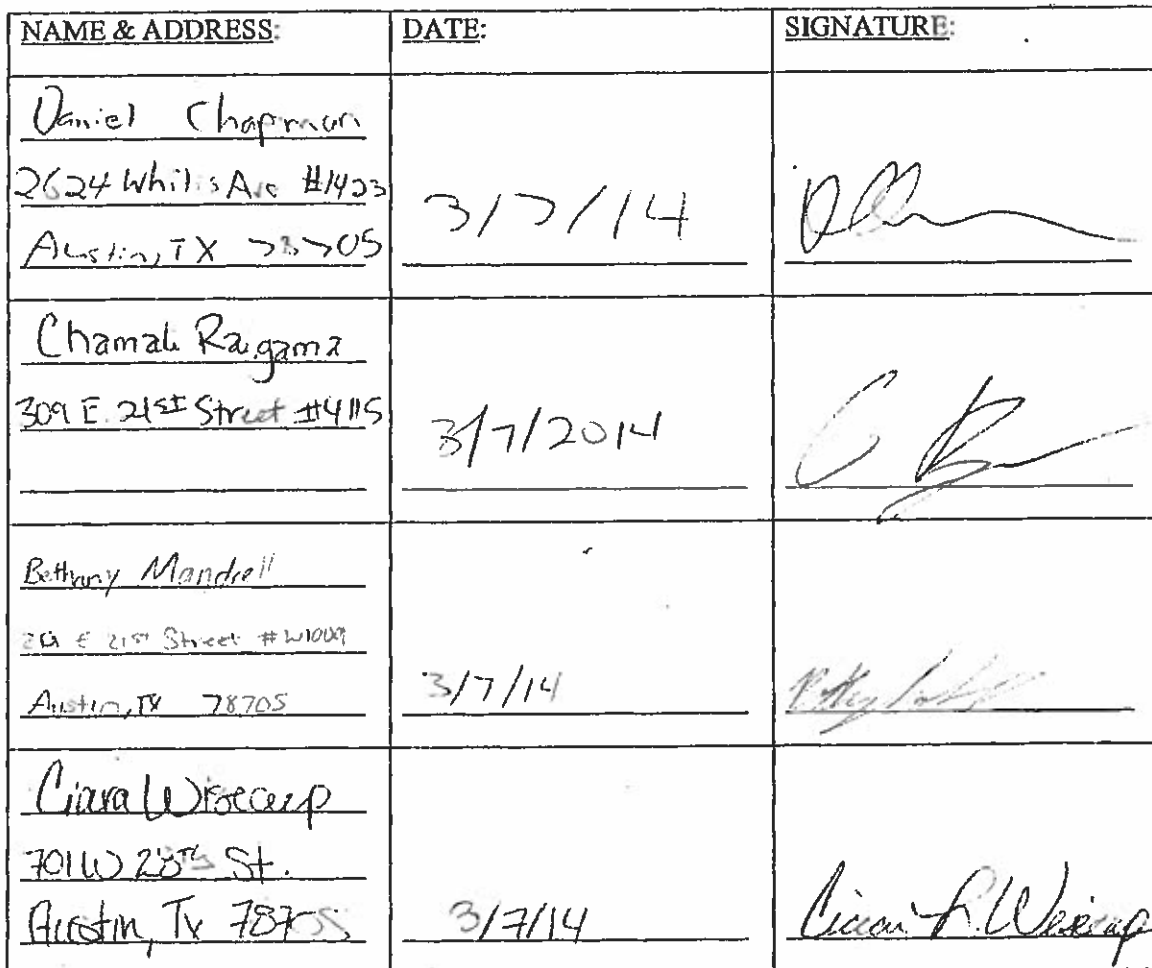 NAME & ADDRESS: DATE: SIGNATURE:
Daniel Chapman
2624 Whitis Ave #1423
Austin, TX 78705 3/7/14
Chamali Raigama
309 E. 21st Street #4115
3/7/2014
Bethany Mandrell
E 21st Street
Austin, TX 78705 3/7/14
Ciara Wisecup
701 W 28th St.
Austin, Tx 78705 3/7/14 Ciara L. Wisecup